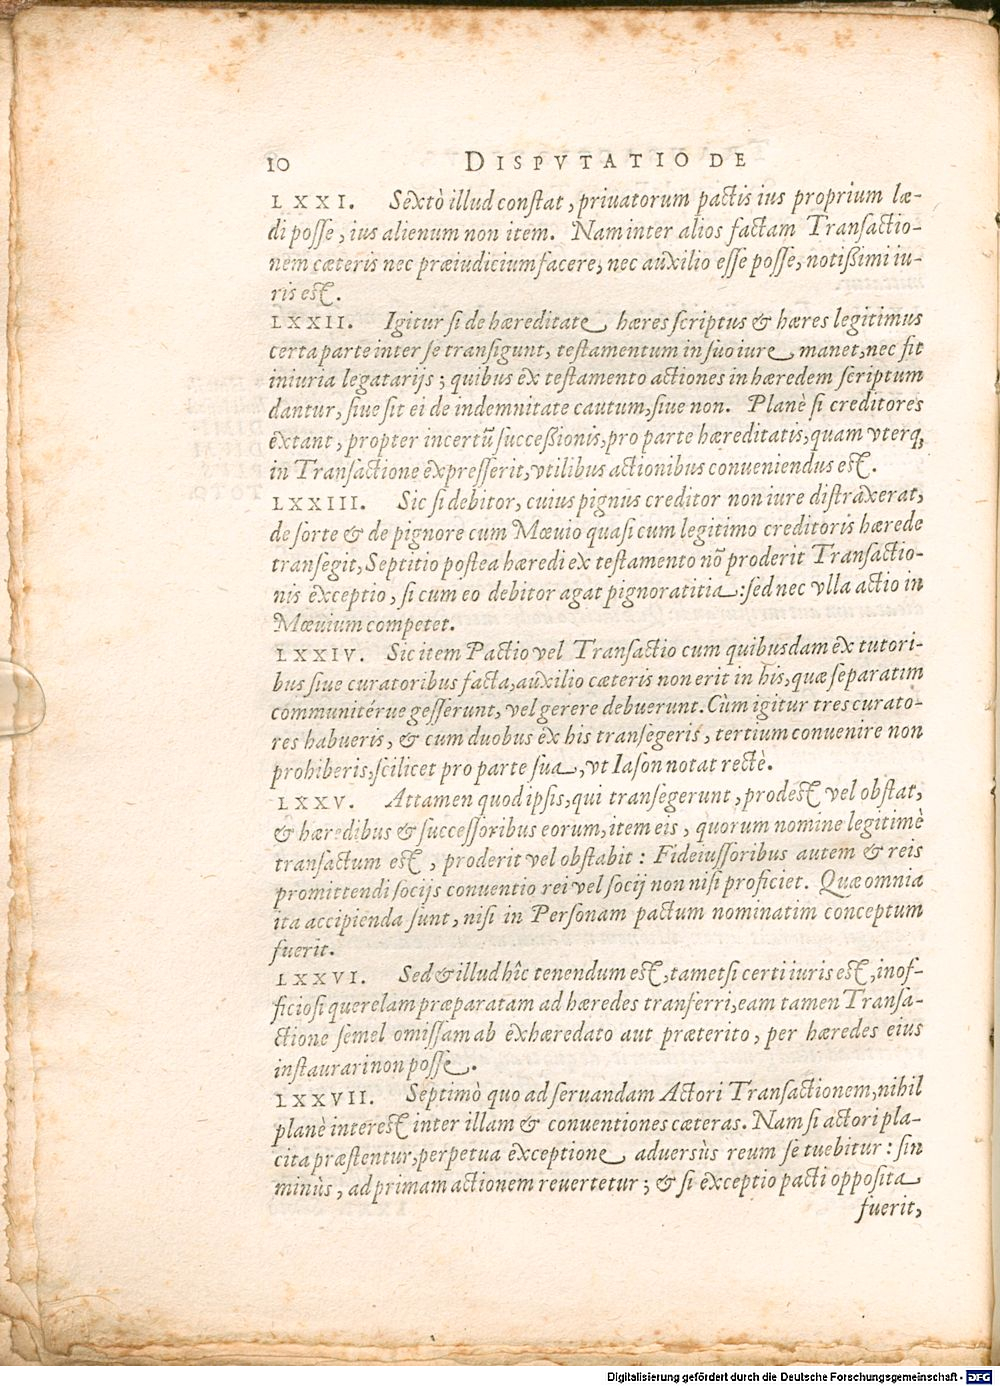 10 DISPVTATIO DE
LXXI. Sextò illud constat, priuatorum pactis ius proprium læ-
di posse, ius alienum non item. Nam inter alios factam Transactio-
nem cæteris nec præiudicium facere, nec auxilio esse posse, notißimi iu-
ris est.
LXXII. Igitur si de hæreditate hæres scriptus & hæres legitimus
certa parte inter se transigunt, testamentum in suo iure manet, nec fit
iniuria legatarijs; quibus ex testamento actiones in hæredem scriptum
dantur, siue sit ei de indemnitate cautum, siue non. Planè si creditores
extant, propter incertũ succeßionis, pro parte hæreditatis, quam vterq;
in Transactione expresserit, vtilibus actionibus conueniendus est.
LXXIII. Sic si debitor, cuius pignus creditor non iure distraxerat,
de sorte & de pignore cum Mæuio quasi cum legitimo creditoris hærede
transegit, Septitio postea hæredi ex testamento nõ proderit Transactio-
nis exceptio, si cum eo debitor agat pignoratitia: sed nec vlla actio in
Mæuium competet.
LXXIV. Sic item Pactio vel Transactio cum quibusdam ex tutori-
bus siue curatoribus facta, auxilio cæteris non erit in his, quæ separatim
communitérue gesserunt, vel gerere debuerunt. Cùm igitur tres curato-
res habueris, & cum duobus ex his transegeris, tertium conuenire non
prohiberis, scilicet pro parte sua, vt Iason notat rectè.
LXXV. Attamen quod ipsis, qui transegerunt, prodest vel obstat,
& hæredibus & successoribus eorum, item eis, quorum nomine legitimè
transactum est, proderit vel obstabit: Fideiussoribus autem & reis
promittendi socijs conuentio rei vel socij non nisi proficiet. Quæ omnia
ita accipienda sunt, nisi in Personam pactum nominatim conceptum
fuerit.
LXXVI. Sed & illud hîc tenendum est, tametsi certi iuris est, inof-
ficiosi querelam præparatam ad hæredes transferri, eam tamen Transa-
ctione semel omissam ab exhæredato aut præterito, per hæredes eius
instaurari non posse.
LXXVII. Septimò quo ad seruandam Actori Transactionem, nihil
planè interest inter illam & conuentiones cæteras. Nam si actori pla-
cita præstentur, perpetua exceptione aduersùs reum se tuebitur: sin
minùs, ad primam actionem reuertetur; & si exceptio pacti opposita
fuerit,
Digitalisierung gefördert durch die Deutsche Forschungsgemeinschaft - DFG